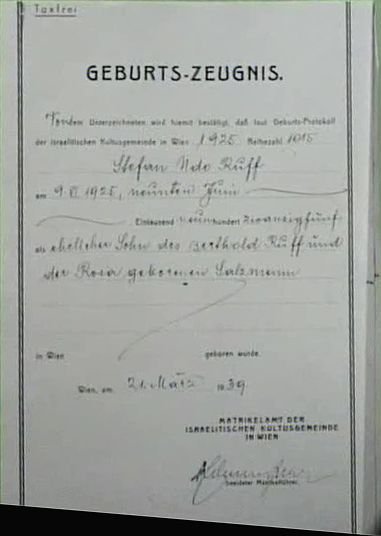 Taxfrei
GEBURTS-ZEUGNIS.
Von dem Unterzeichneten wird hiemit bestätigt, daß laut Geburts-Protokoll
der Israelitischen Kultusgemeinde in Wien 1925 Reihezahl 1015
Stefan Udo Ruff
am 9. VI. 1925, neunten Juni
Eintausend neunhundert zwanzigfünf
als ehelicher Sohn des Berthold Ruff und
der Rosa geborenen Salzmann
in Wien geboren wurde.
Wien, am 21. März 1939
MATRIKELAMT DER
ISRAELITISCHEN KULTUSGEMEINDE
IN WIEN
beeideter Matrikelführer.